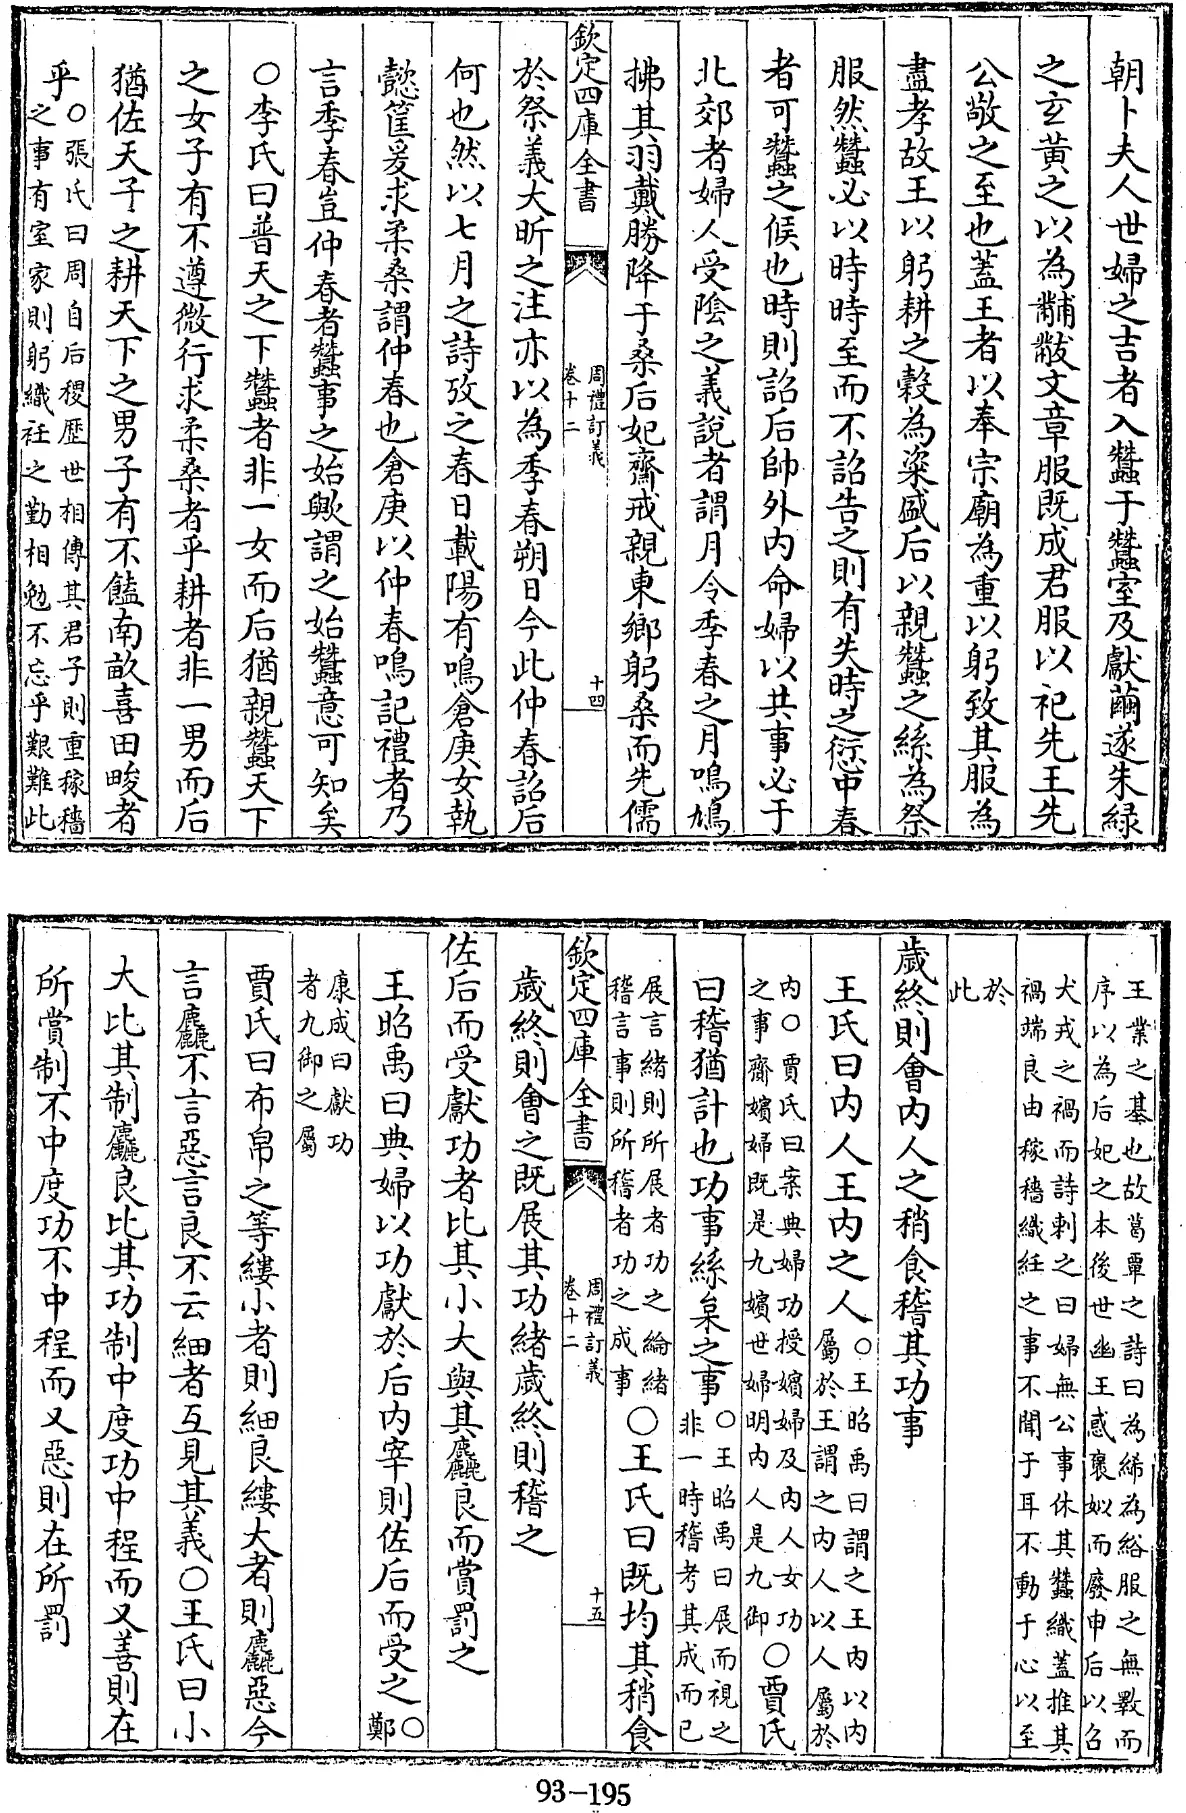 朝卜夫人世婦之吉者入蠶于蠶室及獻繭遂朱緑
之玄黄之以為黼黻文章服既成君服以祀先王先
公敬之至也蓋王者以奉宗廟為重以躬致其服為
盡孝故王以躬耕之穀為粢盛后以親蠶之絲為祭
服然蠶必以時時至而不詔告之則有失時之愆中春
者可蠶之候也時則詔后帥外内命婦以其事必于
北郊者婦人受陰之義說者謂月令季春之月鳴鳩
拂其羽戴勝降于桑后妃齋戒親東鄉躬桑而先儒
欽定四庫全書
周禮訂義
卷十二
十四
於祭義大昕之注亦以為季春朔日今此仲春詔后
何也然以七月之詩攷之春日載陽有鳴倉庚女執
懿筐爰求柔桑謂仲春也倉庚以仲春鳴記禮者乃
言季春豈仲春者蠶事之始歟謂之始蠶意可知矣
○李氏曰普天之下蠶者非一女而后猶親蠶天下
之女子有不遵微行求柔桑者乎耕者非一男而后
猶佐天子之耕天下之男子有不饁南畝喜田畯者
乎○張氏曰周自后稷歷世相傳其君子則重稼穡
之事有室家則躬織紝之勤相勉不忘乎艱難此
王業之基也故葛覃之詩曰為絺為綌服之無斁而
序以為后妃之本後世幽王惑褒姒而廢申后以召
犬戎之禍而詩刺之曰婦無公事休其蠶織蓋推其
禍端良由稼穡織紝之事不聞于耳不動于心以至
於
此
歲終則會内人之稍食稽其功事
王氏曰内人王内之人○王昭禹曰謂之王内以内
屬於王謂之内人以人屬於
内○賈氏曰案典婦功授嬪婦及内人女功
之事齋嬪婦既是九嬪世婦明内人是九御○賈氏
曰稽猶計也功事絲枲之事○王昭禹曰展而視之
非一時稽考其成而已
展言緒則所展者功之綸緒
稽言事則所稽者功之成事○王氏曰既均其稍食
欽定四庫全書
周禮訂義
卷十二
十五
歲終則會之既展其功緒歲終則稽之
佐后而受獻功者比其小大與其麤良而賞罰之
王昭禹曰典婦以功獻於后内宰則佐后而受之○
鄭
康成曰獻功
者九御之屬
賈氏曰布帛之等縷小者則細良縷大者則麤惡今
言麤不言惡言良不云細者互見其義○王氏曰小
大比其制麤良比其功制中度功中程而又善則在
所賞制不中度功不中程而又惡則在所罰
93-195